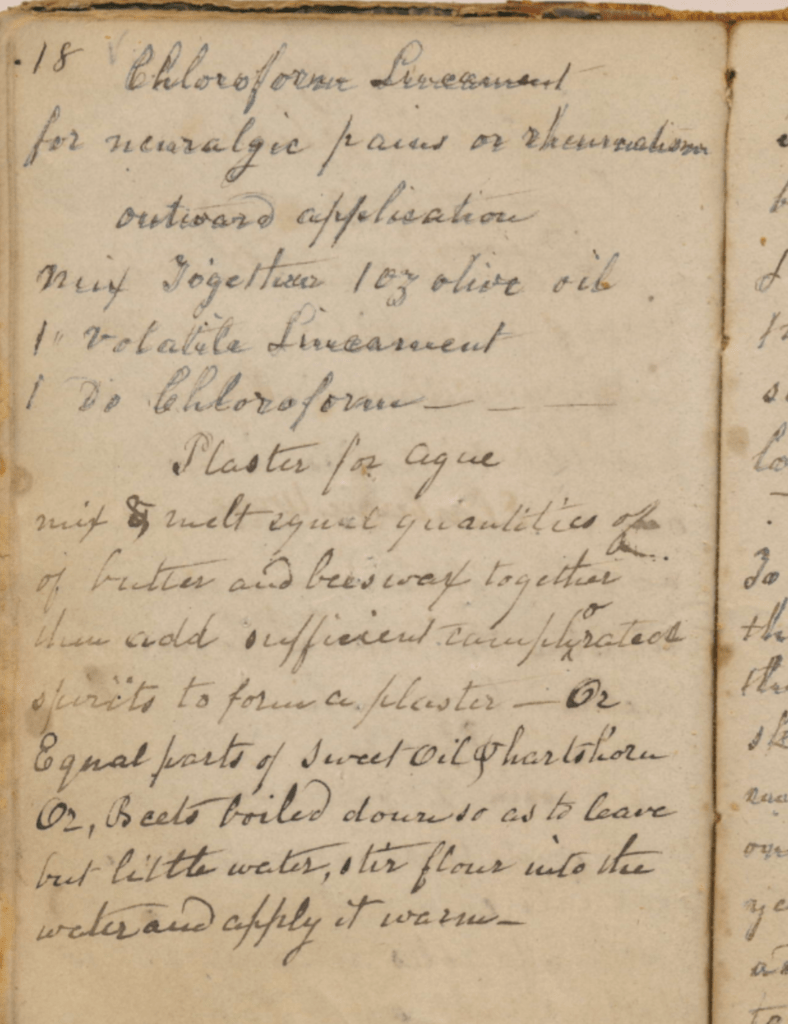 18
Chloroform Lineament
for neuralgic pains or rheumatism
outward application
mix Together 1 oz olive oil
1 " Volatile Lineament
1 Do Chloroform — — —
Plaster for ague
mix & melt equal quantities of
of butter and beeswax together
then add sufficient camphorated
spirits to form a plaster — Or
Equal parts of Sweet Oil & hartshorn
Or, Beets boiled down so as to leave
but little water, stir flour into the
water and apply it warm —